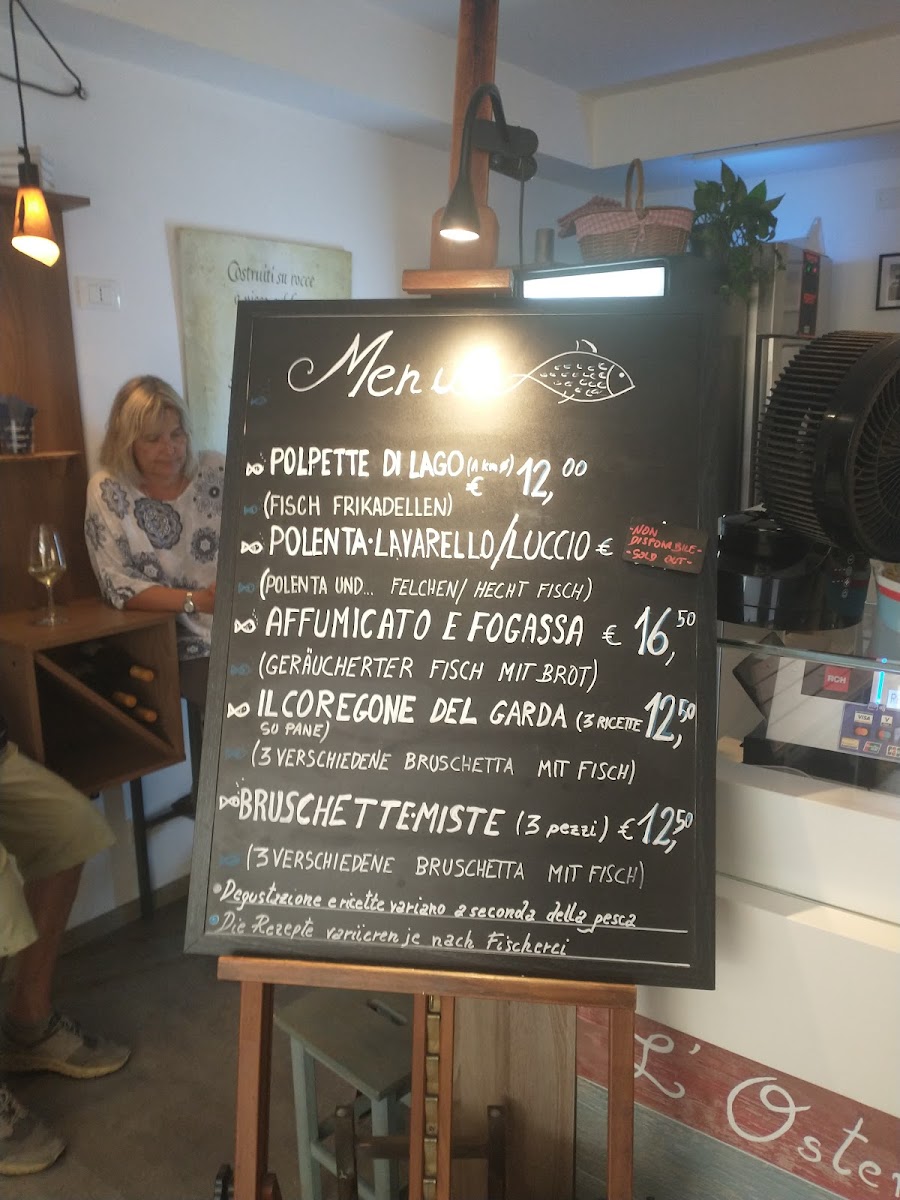 Costruiti su rocce
Menu
POLPETTE DI LAGO (1 km ø) € 12,00
(FISCH FRIKADELLEN)
POLENTA·LAVARELLO/LUCCIO €
-NON
DISPONIBILE-
-SOLD OUT-
(POLENTA UND... FELCHEN/ HECHT FISCH)
AFFUMICATO E FOGASSA € 16,50
(GERÄUCHERTER FISCH MIT BROT)
IL COREGONE DEL GARDA (3 RICETTE 12,50
SU PANE)
(3 VERSCHIEDENE BRUSCHETTA MIT FISCH)
BRUSCHETTE·MISTE (3 pezzi) € 12,50
(3 VERSCHIEDENE BRUSCHETTA MIT FISCH)
Degustazione e ricette variano a seconda della pesca
Die Rezepte variieren je nach Fischerei
RCH
VISA
L'Oste